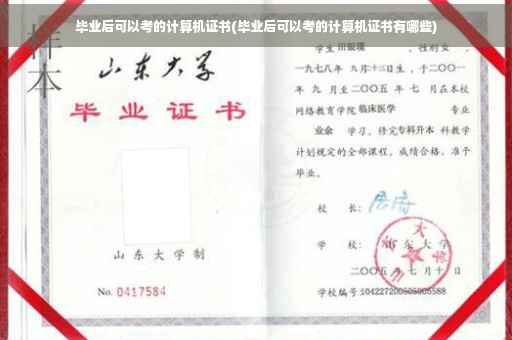 毕业后可以考的计算机证书(毕业后可以考的计算机证书有哪些)
样本
山东大学
毕业证书
山东大学制
No. 0417584
学生
性别女,
一九七八年 九月十三日生,于二〇〇一
年 九 月至二〇〇五 年 七 月在本校
网络教育学院 临床医学 专业
业余 学习,修完专科升本科教学
计划规定的全部课程,成绩合格,准予
毕业。
校 长:
学 校: 山东大学
二〇〇五 年 七 月 十 日
学校编号: